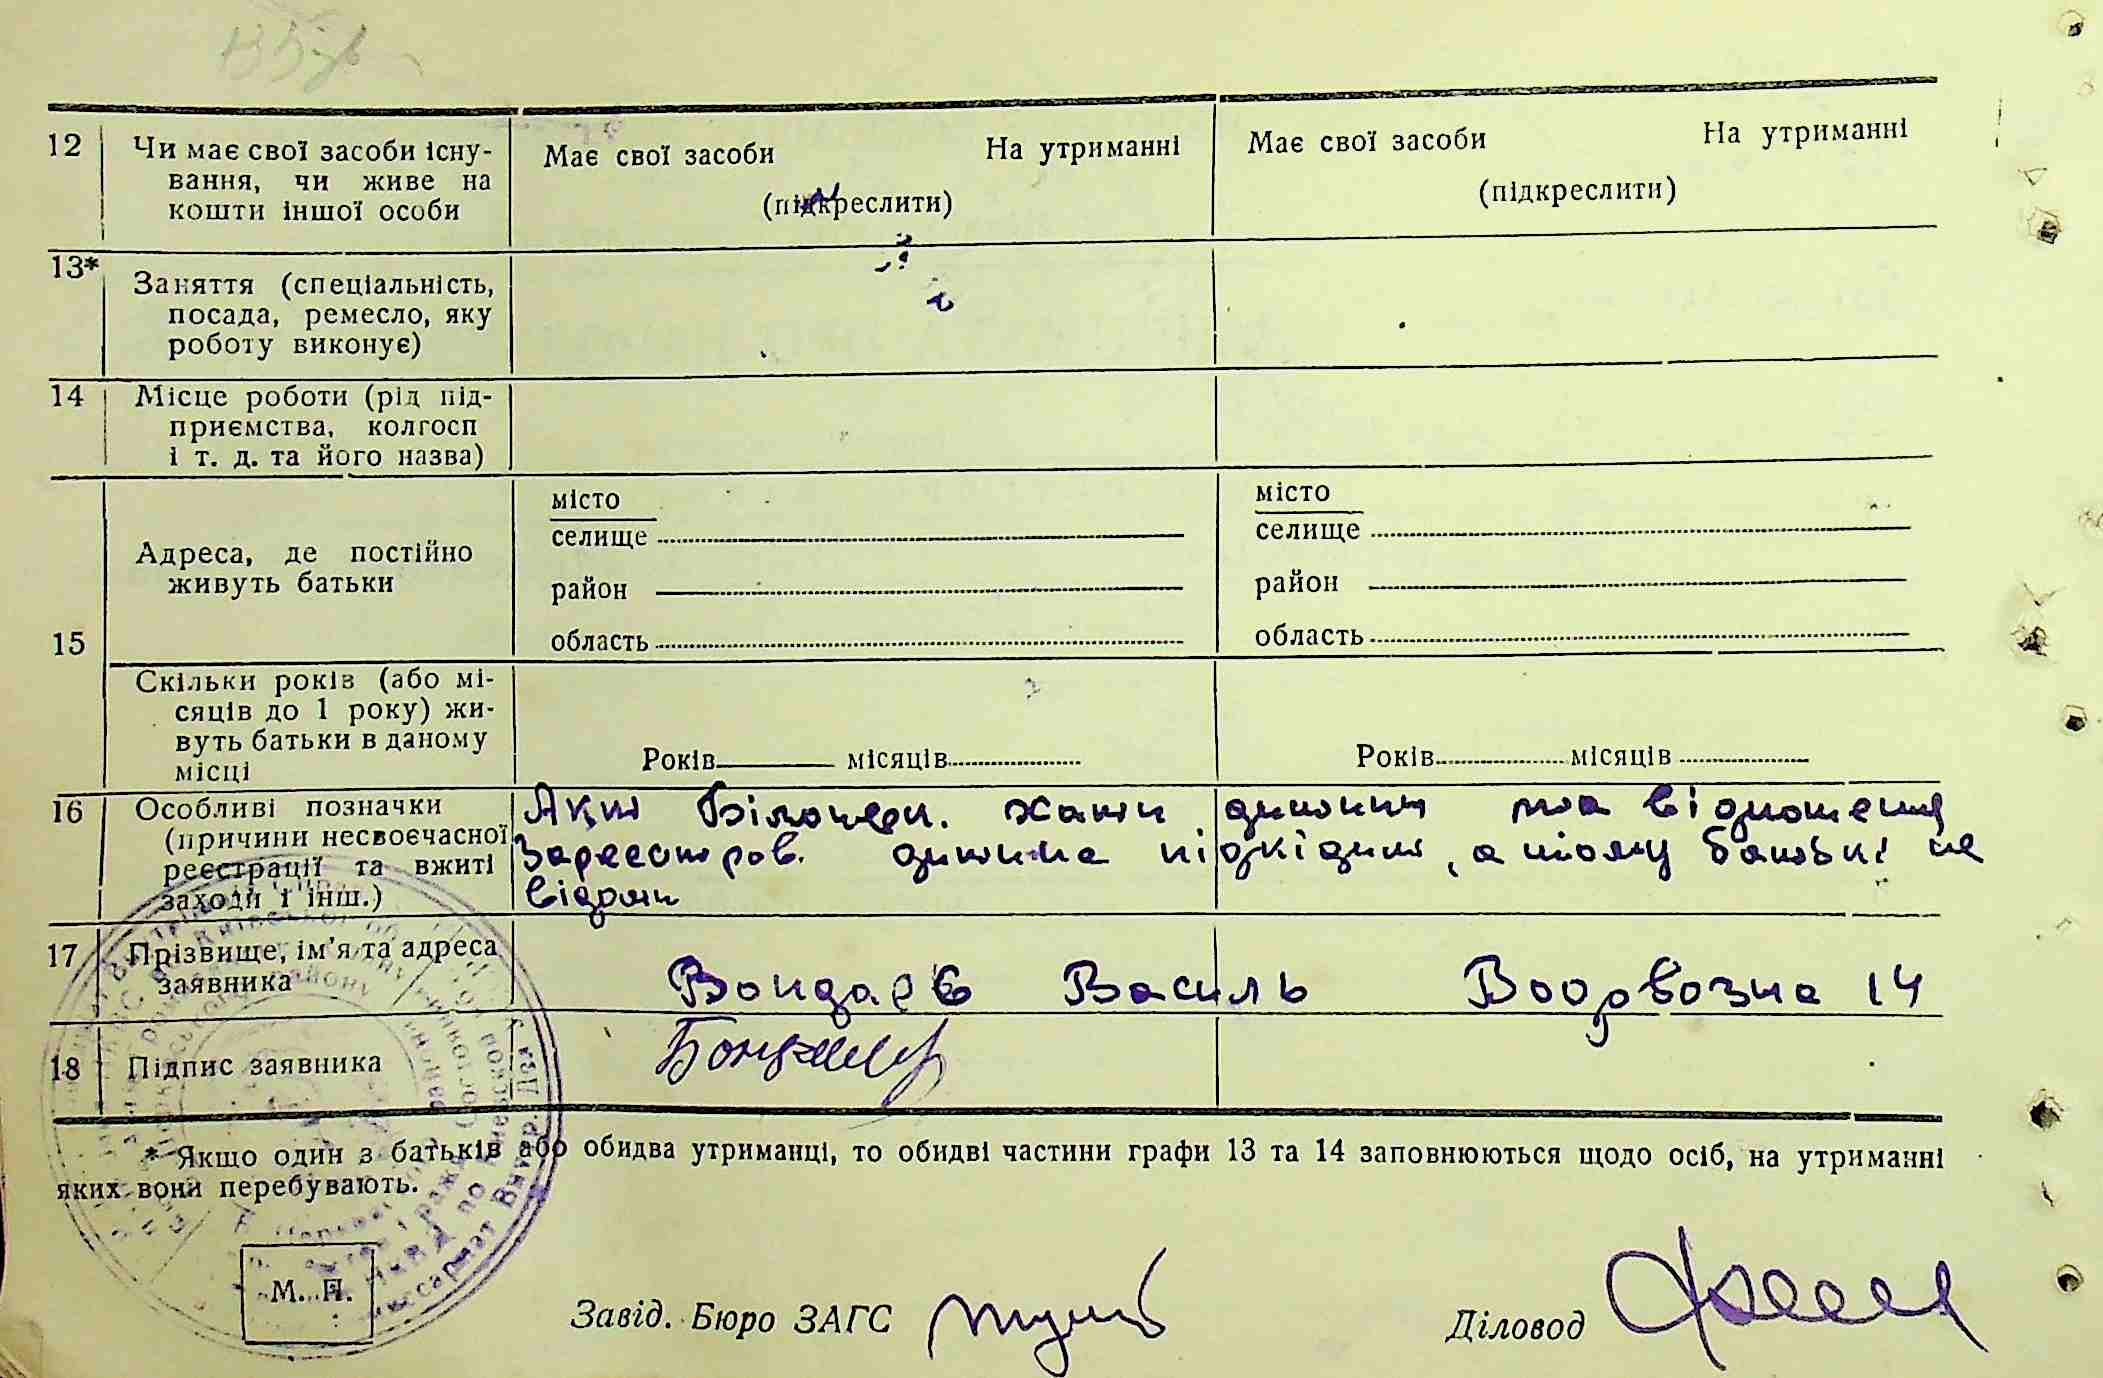 12 Чи має свої засоби існу- Має свої засоби На утриманні Має свої засоби На утриманні
вання, чи живе на
кошти іншої особи (підкреслити) (підкреслити)
13* Заняття (спеціальність,
посада, ремесло, яку
роботу виконує)
14 Місце роботи (рід під-
приємства, колгосп
і т. д. та його назва)
місто місто
селище селище
Адреса, де постійно
живуть батьки
район район
15
область область
Скільки років (або мі-
сяців до 1 року) жи-
вуть батьки в даному
місці
Років місяців Років місяців
16 Особливі позначки
(причини несвоєчасної
реєстрації та вжиті
заходи і інш.)
Акт хати дитини та відношення
дитина підкідиш, а тому батьки не
відомі
17 Прізвище, ім'я та адреса
заявника
Василь 14
18 Підпис заявника
* Якщо один з батьків або обидва утриманці, то обидві частини графи 13 та 14 заповнюються щодо осіб, на утриманні
яких вони перебувають.
М. П.
Завід. Бюро ЗАГС Діловод